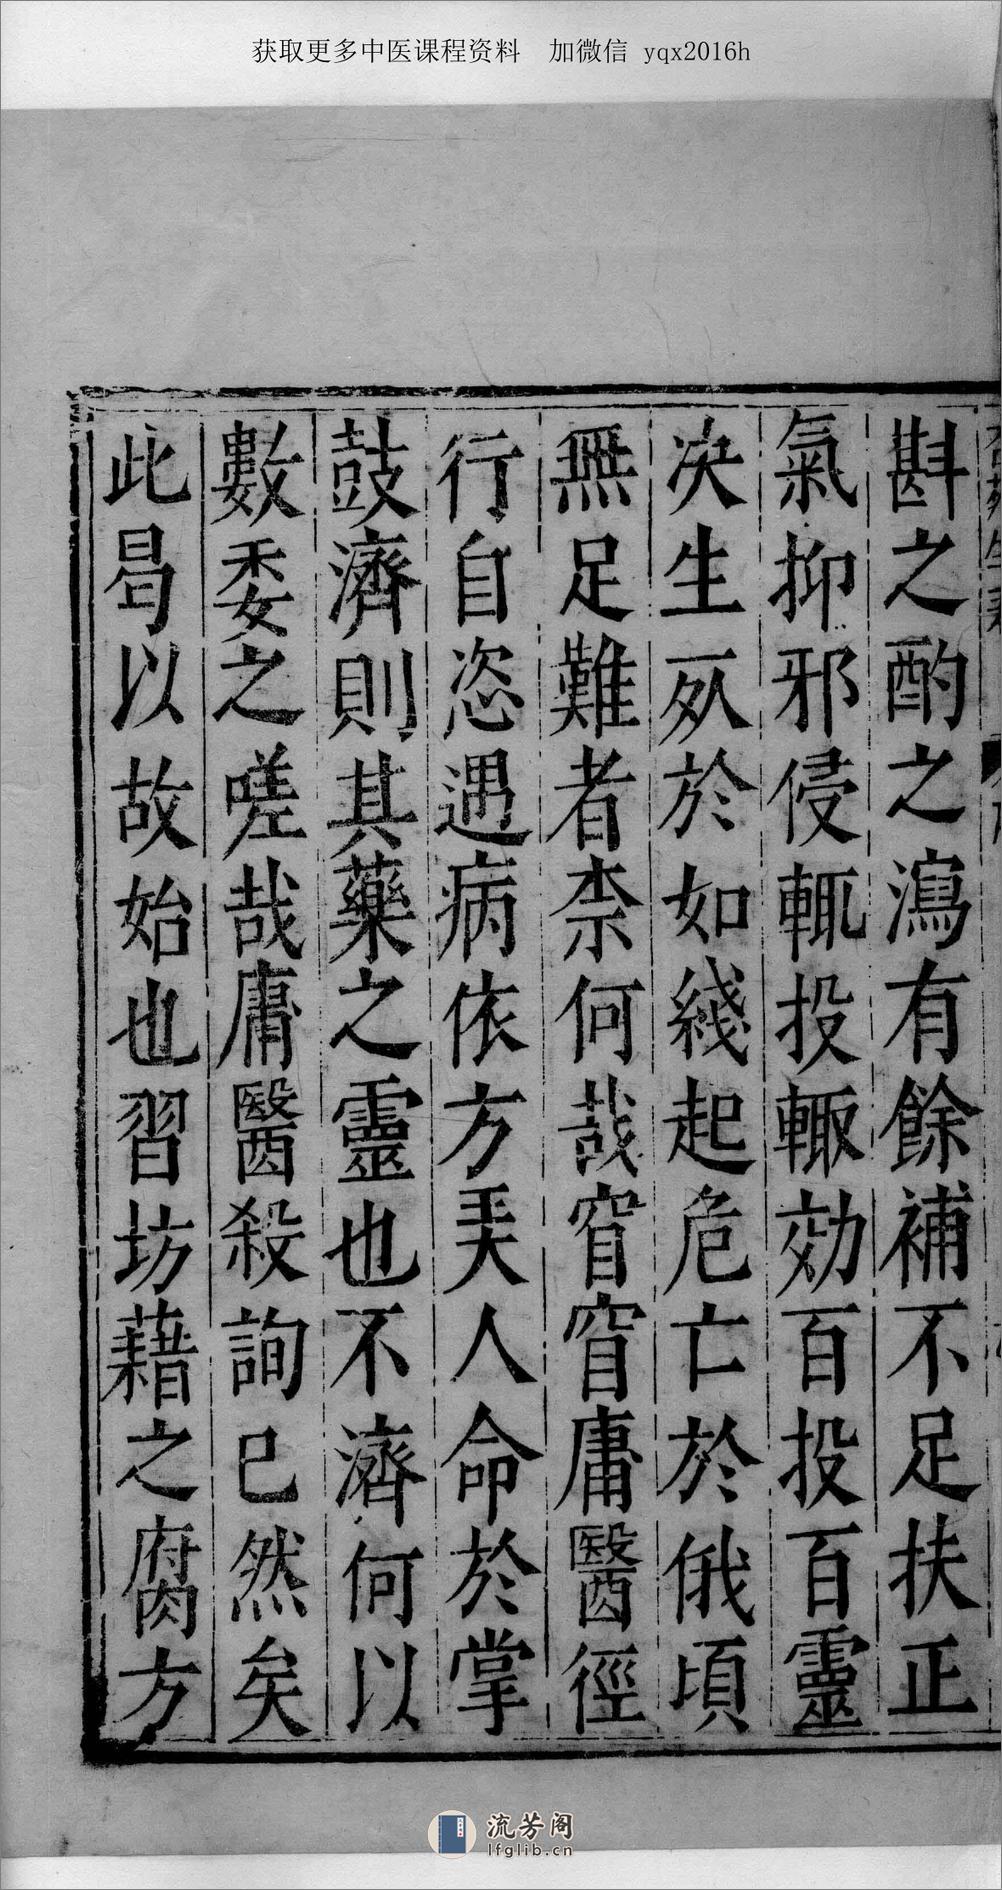 获取更多中医课程资料 加微信 yqx2016h
斟之酌之瀉有餘補不足扶正
氣抑邪侵輒投輙効百投百靈
决生死於如綫起危亡於俄頃
無足難者柰何哉窅窅庸醫徑
行自恣遇病依方美人命於掌
鼓濟則其藥之靈也不濟何以
數委之嗟哉庸醫殺詢已然矣
此曷以故始也習坊藉之腐方
流芳阁
lfglib.cn